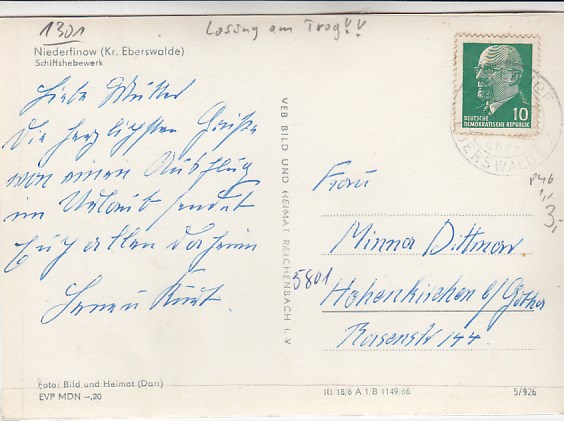 1301
Losung am Trog!!
Niederfinow (Kr. Eberswalde)
Schiffshebewerk
Liebe Mutter
Die herzlichsten Grüße
von einen Ausflug
im Urlaub sendet
Euch allen daheim
Kurt.
Foto: Bild und Heimat (Dari)
EVP MDN –,20
VEB BILD UND HEIMAT REICHENBACH i. V
10
DEUTSCHE
DEMOKRATISCHE REPUBLIK
EBERSWALDE
P46
1,-
3,-
Frau
Minna Dittmar
5801
Hohenkirchen b/ Gotha
144.
III 18/6 A 1/B 1149/66
5/926